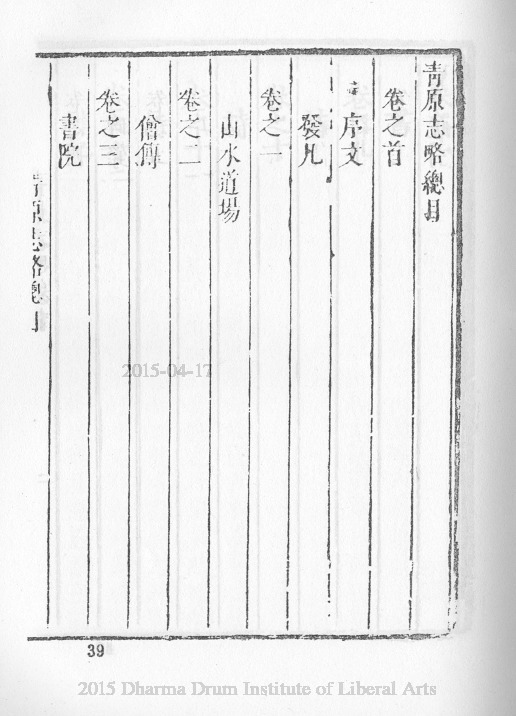 青原志略總目
卷之首
序文
發凡
卷之一
山水道場
卷之二
僧傳
卷之三
書院
青原志略總目
2015-04-17
39
2015 Dharma Drum Institute of Liberal Arts